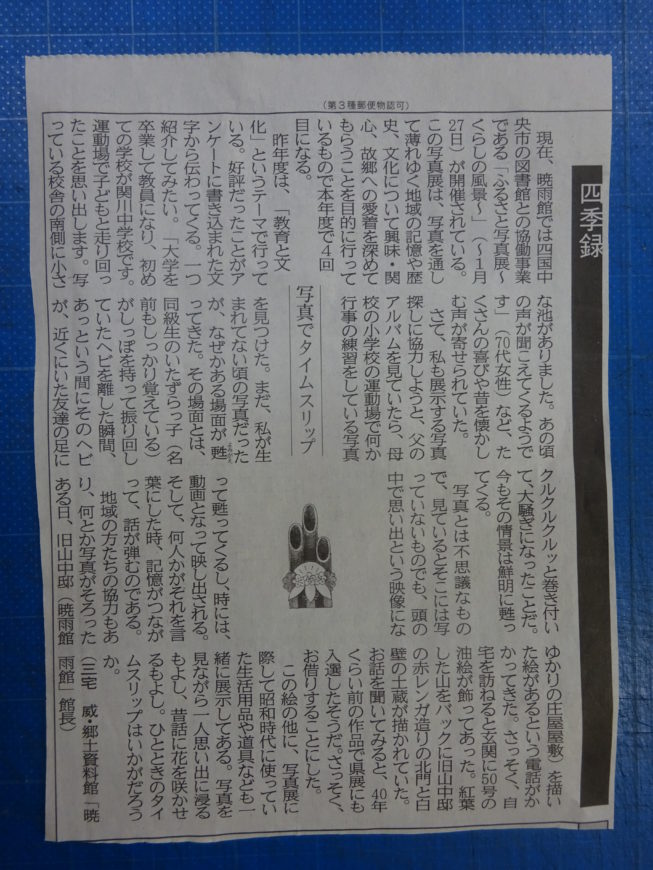 (第３種郵便物認可)
四季録
写真でタイムスリップ
現在、暁雨館では四国中
央市の図書館との協働事業
である「ふるさと写真展～
くらしの風景～」（～１月
27日）が開催されている。
この写真展は、写真を通し
て薄れゆく地域の記憶や歴
史、文化について興味・関
心、故郷への愛着を深めて
もらうことを目的に行って
いるもので本年度で４回
目になる。
昨年度は、「教育と文
化」というテーマで行って
いる。好評だったことがア
ンケートに書き込まれた文
字から伝わってくる。一つ
紹介してみたい。「大学を
卒業して教員になり、初め
ての学校が関川中学校です。
運動場で子どもと走り回っ
たことを思い出します。写
っている校舎の南側に小さ
な池がありました。あの頃
の声が聞こえてくるようで
す」（70代女性）など、た
くさんの喜びや昔を懐かし
む声が寄せられていた。
さて、私も展示する写真
探しに協力しようと、父の
アルバムを見ていたら、母
校の小学校の運動場で何か
行事の練習をしている写真
を見つけた。まだ、私が生
まれてない頃の写真だった
が、なぜかある場面が甦
ってきた。その場面とは、
同級生のいたずらっ子（名
前もしっかり覚えている）
がしっぽを持って振り回し
ていたヘビを離した瞬間、
あっという間にそのヘビ
が、近くにいた友達の足に
クルクルクルッと巻き付い
て、大騒ぎになったことだ。
今もその情景は鮮明に甦っ
てくる。
写真とは不思議なもの
で、見ているとそこには写
っていないものでも、頭の
中で思い出という映像にな
って甦ってくるし、時には、
動画となって映し出される。
そして、何人かがそれを言
葉にした時、記憶がつなが
って、話が弾むのである。
地域の方たちの協力もあ
り、何とか写真がそろった
ある日、旧山中邸（暁雨館
ゆかりの庄屋屋敷）を描い
た絵があるという電話がか
かってきた。さっそく、自
宅を訪ねると玄関に50号の
油絵が飾ってあった。紅葉
した山をバックに旧山中邸
の赤レンガ造りの北門と白
壁の土蔵が描かれていた。
お話を聞いてみると、40年
くらい前の作品で県展にも
入選したそうだ。さっそく、
お借りすることにした。
この絵の他に、写真展に
際して昭和時代に使ってい
た生活用品や道具なども一
緒に展示してある。写真を
見ながら一人思い出に浸る
もよし、昔話に花を咲かせ
るもよし。ひとときのタイ
ムスリップはいかがだろう
か。
（三宅　威・郷土資料館「暁
雨館」館長）